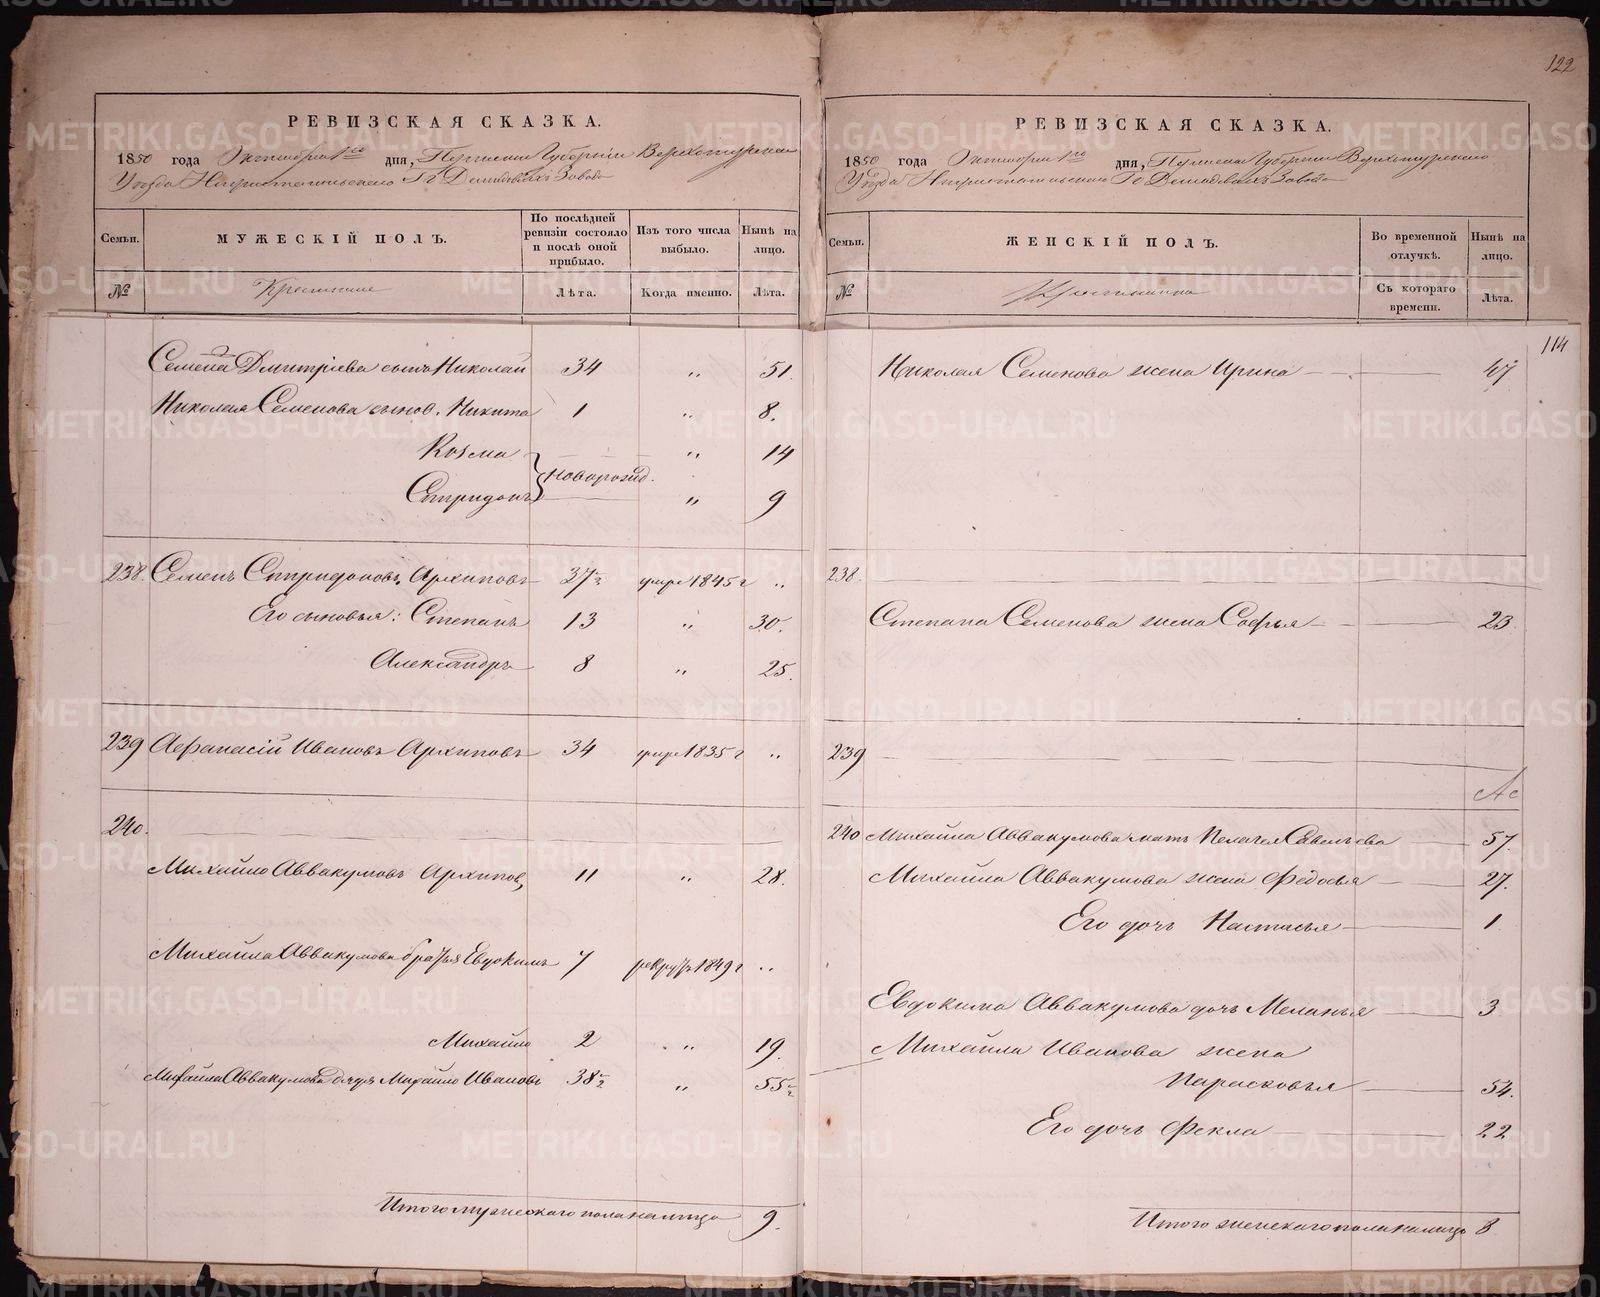 122
РЕВИЗСКАЯ СКАЗКА.
1850 года Октября 1го дня, Пермской Губерніи Верхотурскаго
Уѣзда Нижнетагильскаго Гг Демидовыхъ Завода
Семьи.
МУЖЕСКІЙ ПОЛЪ.
По послѣдней ревизіи состояло и послѣ оной прибыло.
Изъ того числа выбыло.
Нынѣ на лицо.
№
Крестьяне
Лѣта.
Когда именно.
Лѣта.
Семена Дмитріева сынъ Николай 34 " 51.
Николая Семенова сынов. Никита 1 " 8.
Козма " 14
новорожд.
Спридонъ " 9
238. Семенъ Спридоновъ Архиповъ 37½ умре 1845 г "
Его сыновья: Степанъ 13 " 30.
Александръ 8 " 25.
239 Афанасій Ивановъ Архиповъ 34 умре 1835 г "
240.
Михайло Аввакумовъ Архипов, 11 " 28.
Михайла Аввакумова братья Евдокимъ 7 рекрутъ 1849 г "
Михайло 2 " 19.
Михайла Аввакумова дядя Михайло Ивановъ 38½ " 55½
Итого мужескаго пола налицо 9.
РЕВИЗСКАЯ СКАЗКА.
1850 года Октября 1го дня, Пермской Губерніи Верхотурскаго
Уѣзда Нижнетагильскаго Гг Демидовыхъ Завода
Семьи.
ЖЕНСКІЙ ПОЛЪ.
Во временной отлучкѣ.
Нынѣ на лицо.
№
Съ котораго времени.
Лѣта.
114
Николая Семенова жена Ирина 47
238.
Степана Семенова жена Софья 23.
239
240 Михайла Аввакумова мать Пелагея Савельева 57.
Михайла Аввакумова жена Федосья 27.
Его дочь Настасья 1.
Евдокима Аввакумова дочь Меланья 3
Михайла Иванова жена
Парасковья 54.
Его дочь Фекла 22
Итого женскаго пола налицо 8
METRIKI.GASO-URAL.RU